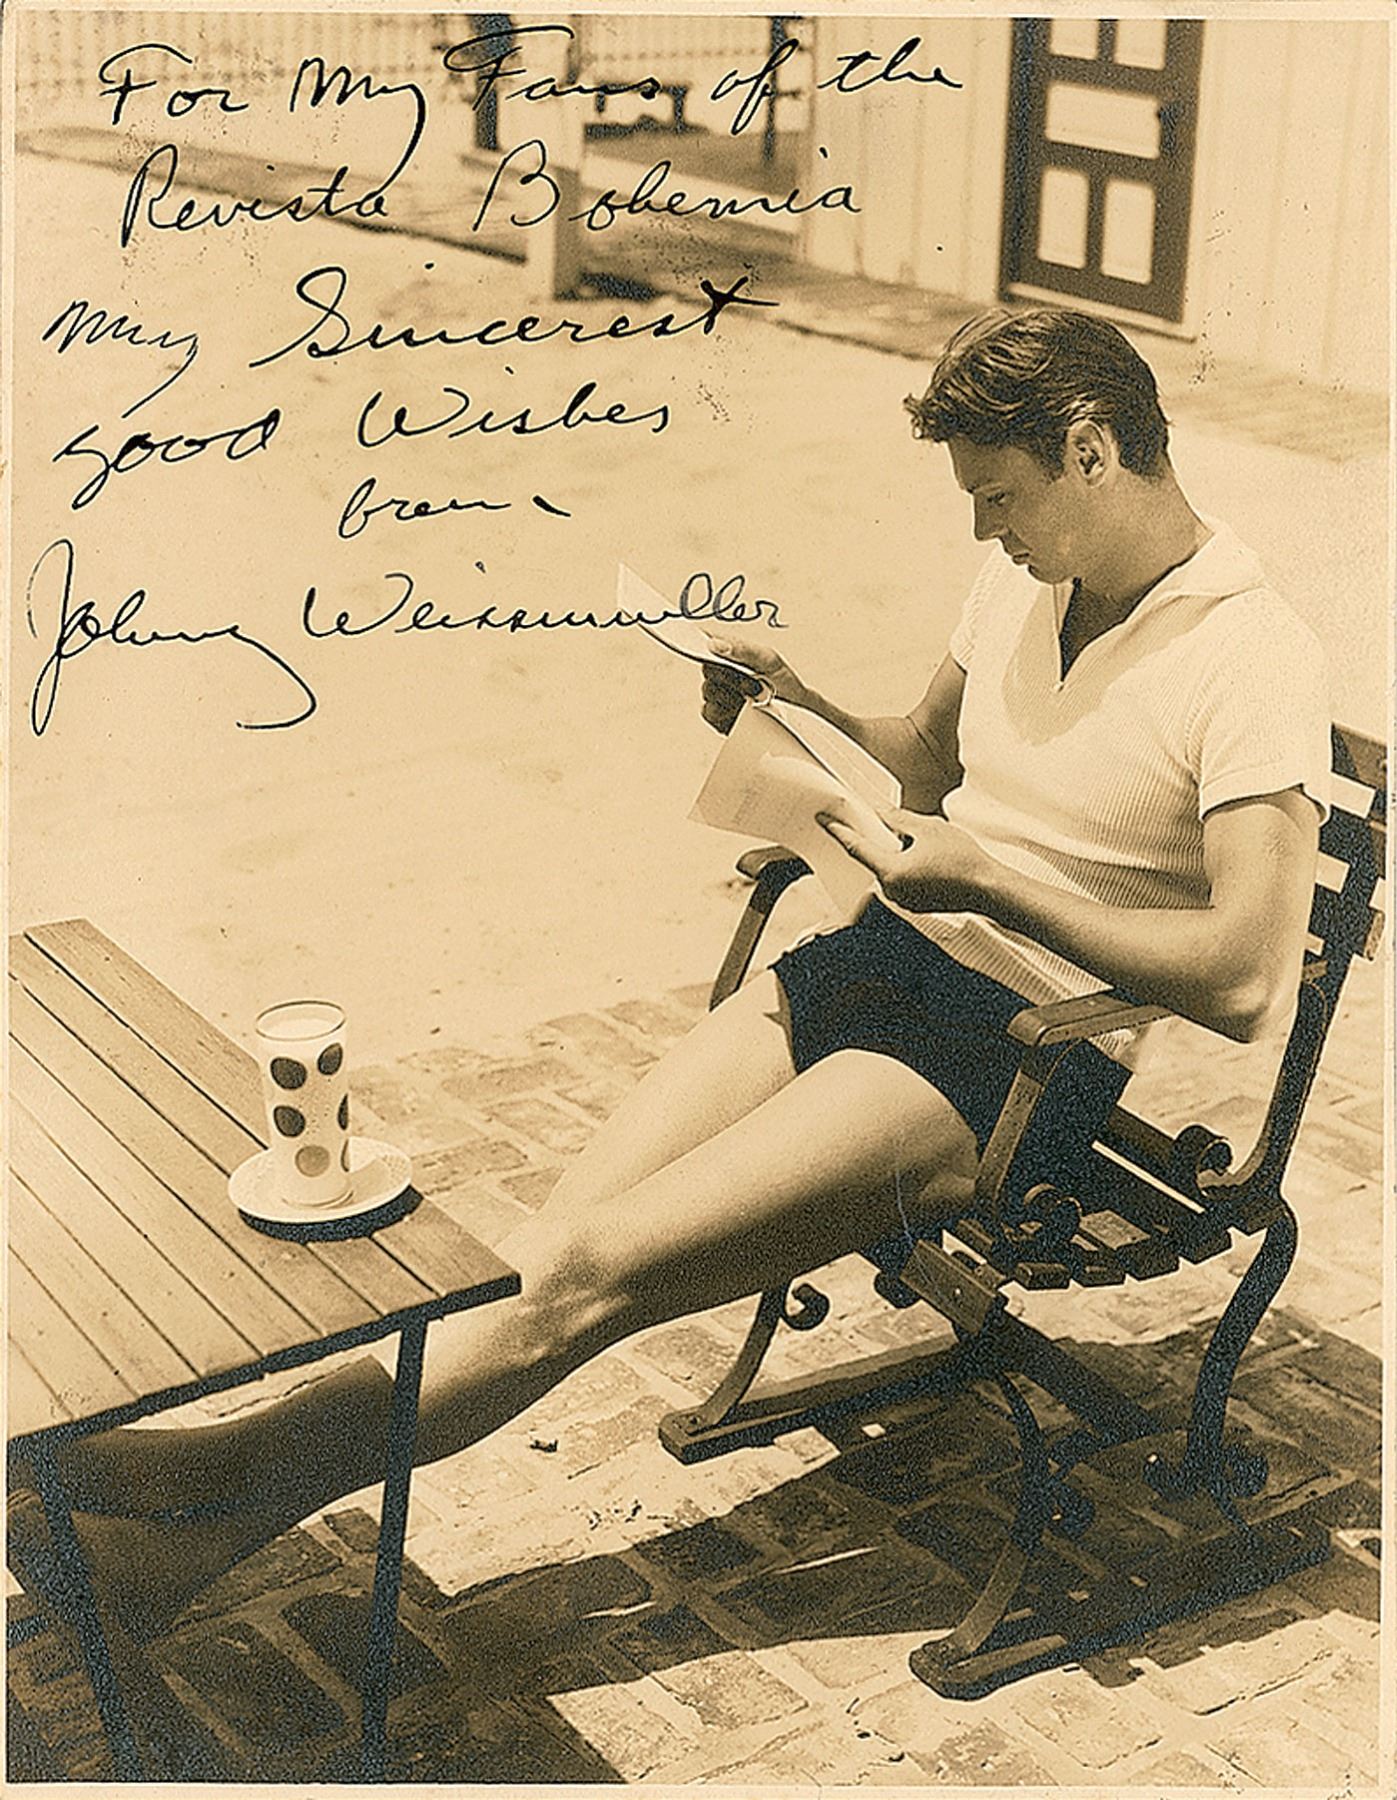 For My Fans of the
Revista Bohemia
My Sincerest
good Wishes
from
Johnny Weissmuller